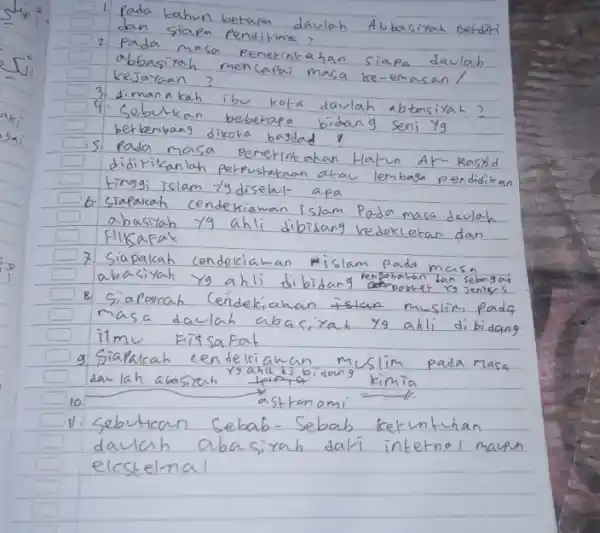 1. Pada tahun berapa daulah Abbasiyah berdiri
dan siapa Pendirinya ?
2. Pada masa Pemerintahan siapa daulah
abbasiyah mencapai masa ke-emasan /
kejayaan ?
3. dimanakah ibu kota daulah abbasiyah ?
4. Sebutkan beberapa bidang seni Yg
berkembang dikota bagdad ?
5. Pada masa Pemerintahan Harun Ar-Rasyid
didirikanlah perpustakaan atau lembaga pendidikan
tinggi islam Yg disebut apa
6. siapakah cendekiawan islam Pada masa daulah
abasiyah Yg ahli dibidang kedokteran dan
7. Siapakah cendekiawan islam pada masa
abasiyah Yg ahli dibidang Pengobatan dan sebagai
dokter Yg jenius
8. Siapakah Cendekiawan islam muslim Pada
masa daulah abasiyah Yg ahli dibidang
ilmu Filsafat
9. Siapakah cendekiawan muslim pada masa
daulah abasiyah Yg ahli di bidang kimia
10. astronomi
11. Sebutkan Sebab-Sebab keruntuhan
daulah abasiyah dari internal maupun
eksternal